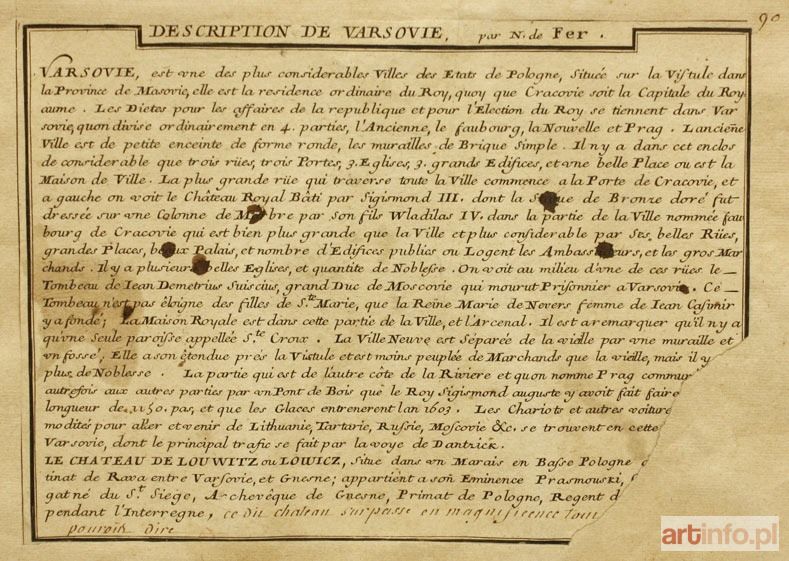 90
DESCRIPTION DE VARSOVIE, par N. de Fer.
VARSOVIE, est vne des plus considerables Villes des Etats de Pologne, Situéé sur la Vistule dans
la Province de Masovie, elle est la residence ordinaire du Roy, quoy que Cracovie soit la Capitale du Roy
aume. Les Dietes pour les affaires de la republique et pour l'Election du Roy se tiennent dans Var
sovie, quon divise ordinairement en 4. parties, l'Ancienne, le faubourg, la Nouvelle et Prag. Lanciene
Ville est de petite enceinte de forme ronde, les murailles de Brique Simple. Il ny a dans cet enclos
de considerable que trois rües, trois Portes, 3. Eglises, 3. grands Edifices, et vne belle Place ou est la
Maison de Ville. La plus grande rüe qui traverse toute la Ville commence a la Porte de Cracovie, et
a gauche on voit le Château Royal Bâti par Sigismond III. dont la de Bronze doré fut
dressée sur vne Colonne de par Son fils Wladilas IV. dans la partie de la Ville nommée fau
bourg de Cracovie qui est bien plus grande que la Ville et plus considerable par Ses belles Rües,
grandes Places, Palais, et nombre d'Edifices publics ou Logent les et les gros Mar
chands. Il y a plusieurs belles Eglises, et quantite de Noblesse. On voit au milieu d'vne de ces rües le
Tombeau de Iean Demetrius Suiscius, grand Duc de Moscovie qui mourut Prisonnier a Varsovie. Ce
Tombeau n'est pas éloigne des filles de Ste. Marie, que la Reine Marie de Nevers femme de Iean Casimir
y a fondé; La Maison Royale est dans cette partie de la Ville, et l'Arcenal. Il est a remarquer qu'il n'y a
qu'vne Seule paroisse appellée Ste. Croix. La Ville Neuve est Séparée de la vielle par vne muraille et
vn fossé, Elle a son étendue près la Vistule et est moins peuplée de Marchands que la vieille, mais il y
plus de Noblesse. La partie qui est de l'autre côte de la Riviere et quon nomme Prag commu
autrefois aux autres parties par vn Pont de Bois que le Roy Sigismond auguste y avoit fait faire
longueur de 1150. pas, et que les Glaces entrenerent lan 1603. Les Chariots et autres voiture
modités pour aller et venir de Lithuanie, Tartarie, Russie, Moscovie &c. se trouvent en cette
Varsovie, dont le principal trafic se fait par la voye de Dantzick.
LE CHATEAU DE LOUWITZ ou LOWICZ, Situe dans vn Marais en Basse Pologne
tinat de Rava entre Varsovie, et Gnesne; appartient a son Eminence Prasmouski,
gat né du St. Siege, Archevêque de Gnesne, Primat de Pologne, Regent d
pendant l'Interregne, ce dit chateau surpasse en magnificence tout
pouroit dire
artinfo.pl